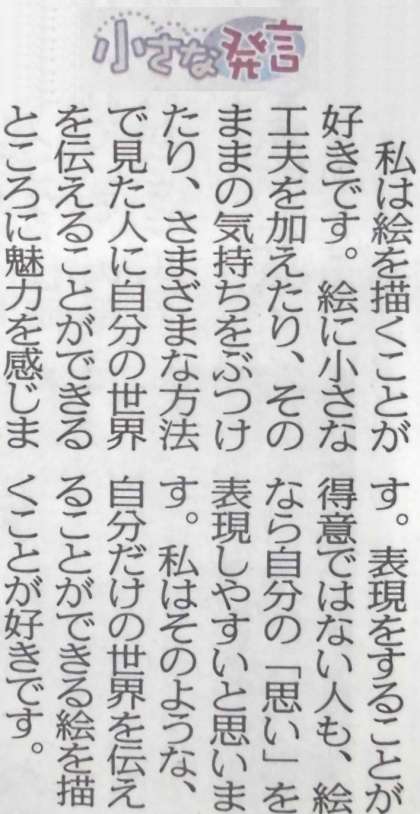 小さな発言
　私は絵を描くことが
好きです。絵に小さな
工夫を加えたり、その
ままの気持ちをぶつけ
たり、さまざまな方法
で見た人に自分の世界
を伝えることができる
ところに魅力を感じま
す。表現をすることが
得意ではない人も、絵
なら自分の「思い」を
表現しやすいと思いま
す。私はそのような、
自分だけの世界を伝え
ることができる絵を描
くことが好きです。